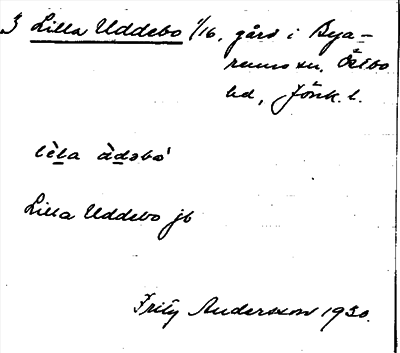 3 Lilla Uddebo 1/16, gård i Bya-
rums sn, Östbo
hd, Jönk. l.
lèla àdəbó
Lilla Uddebo jb
Fritz Andersson 1930.